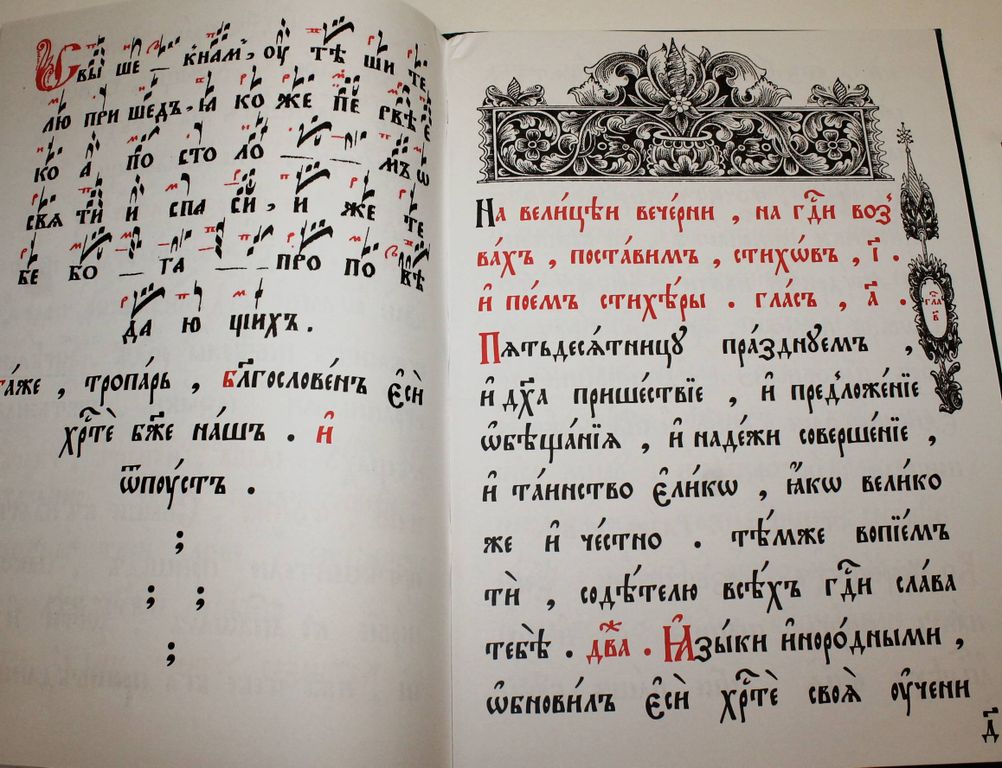 Свы ше _ кнам, ѹ тѣ ши те
лю при шедъ, ꙗ ко же пе рвѣ е
ко а по сто ло _ _ _ мъ ѡ
свѧ ти и спа си, и же те
бе бо _ га _ _ про по вѣ
да ю щихъ.
та́же, тропа́рь, бл҃гослове́нъ є҆сѝ
хрⷭ҇тѐ бж҃е на́шъ. и҆
ѿпꙋ́стъ.
;
; ;
;
На вели́цѣи вече́рни, на гдⷭ҇и воз
ва́хъ, поста́вимъ, стихѡ́въ, і҃.
и҆ пое́мъ стихѣ́ры. гла́съ, а҃.
гла в҃
Пѧтьдесѧ́тницꙋ пра́зднꙋемъ,
и҆ дх҃а прише́ствїе, и҆ предложе́нїе
ѡ҆бѣща́нїѧ, и҆ наде́жи соверше́нїе,
и҆ та́инство є҆ли́кѡ, ꙗ҆́кѡ вели́ко
же и҆ че́стно. тѣ́мже вопїе́мъ
тѝ, содѣ́телю всѣ́хъ гдⷭ҇и сла́ва
тебѣ̀. два́. Ꙗ҆зы́ки и҆норо́дными,
ѡ҆бнови́лъ є҆сѝ хрⷭ҇тѐ своѧ̀ ᲂу҆чени
д҃